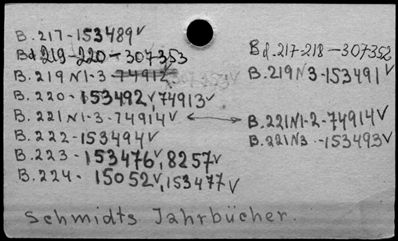 B.217-153489V
Bd 219-220-307353
B.219 N1-3-74912
B.220-153492V, 74913V
B.221 N1-3-74914V
B.222-153494V
B.223-153476V, 8257V
B.224-15052V, 153477V
Bd.217-218-307352
B.219 N3-153491V
B.221 N1-2-74914V
B.221 N3-153493V
Schmidts Jahrbücher.